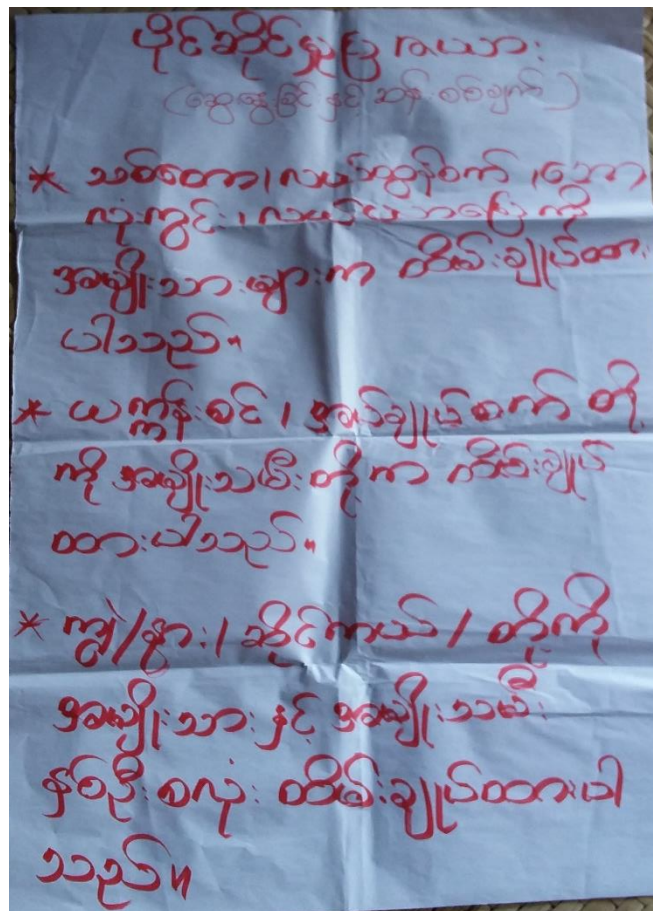 ပိုင်ဆိုင်မှုပြ ဇယား
(ဆွေးနွေးခြင်း နှင့် ဆန်းစစ်ချက်)
* သစ်တော၊ လယ်ထွန်စက် ၊ ဘော
လုံးကွင်း ၊ လယ်ယာမြေ ကို
အမျိုးသားများက ထိမ်းချုပ်ထား
ပါသည်။
* ယက္ကန်းစင် ၊ အပ်ချုပ်စက် တို့
ကို အမျိုးသမီးတို့က ထိမ်းချုပ်
ထားပါသည်။
* ကျွဲ/နွား/ ဆိုင်ကယ်/ တို့ကို
အမျိုးသား နှင့် အမျိုးသမီး
နှစ်ဦးစလုံး ထိမ်းချုပ်ထားပါ
သည်။